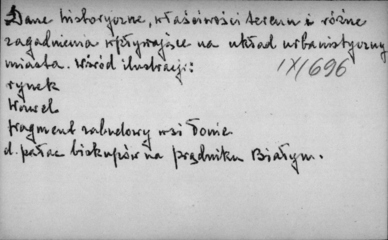 Dane historyczne, właściwości terenu i różne
zagadnienia wpływające na układ urbanistyczny
miasta. Wśród ilustracji:
IX/696
rynek
Wawel
fragment zabudowy wsi Tonie
d. pałac biskupów na Prądniku Białym.